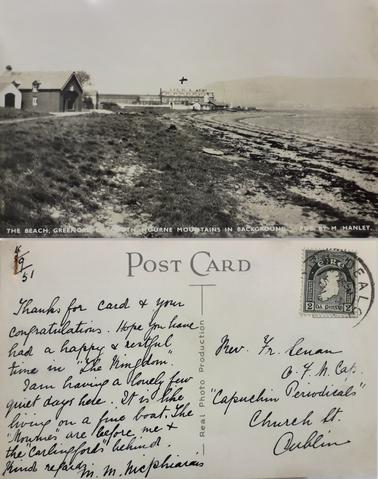 THE BEACH, GREENORE, CO. LOUTH, MOURNE MOUNTAINS IN BACKGROUND. PUB. BY M. HANLEY.
POST CARD
9
51
Thanks for card & your
congratulations. Hope you have
had a happy & restful
time in "The Kingdom".
I am having a lovely few
quiet days here. It is like
living on a fine boat. The
"Mournes" are before me &
the "Carlingfords" behind.
Kind regards
M. M.
Real Photo Production
Rev. Fr. Senan
O.F.M. Cap.
"Capuchin Periodicals"
Church St.
Dublin
2